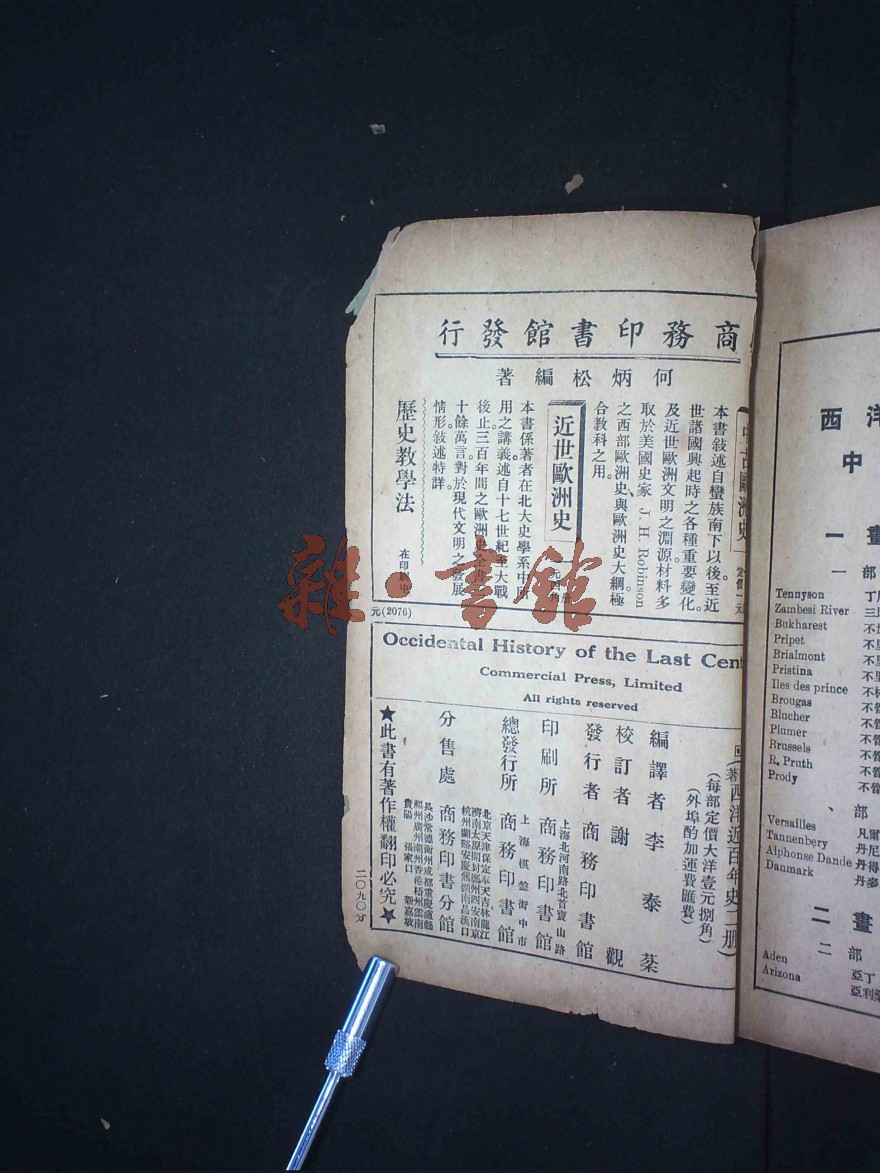 商務印書館發行
何炳松編著
中古歐洲史
定價一元
本書敍述自蠻族南下以後至近
世諸國興起時之各種重要變化。
及近世歐洲文明之淵源材料多
取於美國史家 J. H. Robinson
之西部歐洲史、與歐洲史大綱極
合教科之用。
近世歐洲史
本書係著者在北大史學系中所
用之講義。述自十七世紀至大戰
後止。三百年間之歐洲史全書
十餘萬言對於現代文明之發展
情形敍述特詳。
歷史教學法
在印刷中
元(2076)
Occidental History of the Last Cent
Commercial Press, Limited
All rights reserved
西洋近百年史二册)
(每部定價大洋壹元捌角)
(外埠酌加運費匯費)
編譯者 李泰棻
校訂者 謝 觀
發行者 商務印書館
上海北河南路北首寶山路
印刷所 商務印書館
上海棋盤街中市
總發行所 商務印書館
北京天津保定奉天吉林龍江
濟南太原開封鄭州西安南京
杭州蘭谿安慶蕪湖南昌漢口
分售處 商務印書分館
長沙常德衡州成都重慶瀘縣
福州廣州潮州香港梧州雲南
貴陽 張家口 新嘉坡
★此書有著作權翻印必究★
二〇九〇分
西洋
中
一畫
一部
Tennyson
Zambesi River
Bukharest
Pripet
Brialmont
Pristina
Iles des prince
Brougas
Blucher
Plumer
Brussels
R. Pruth
Prody
部
Versailles 凡爾
Tannenbery 丹尼
Alphonse Dande 丹得
Danmark 丹麥
二畫
二部
Aden 亞丁
Arizona 亞利
雜·書館